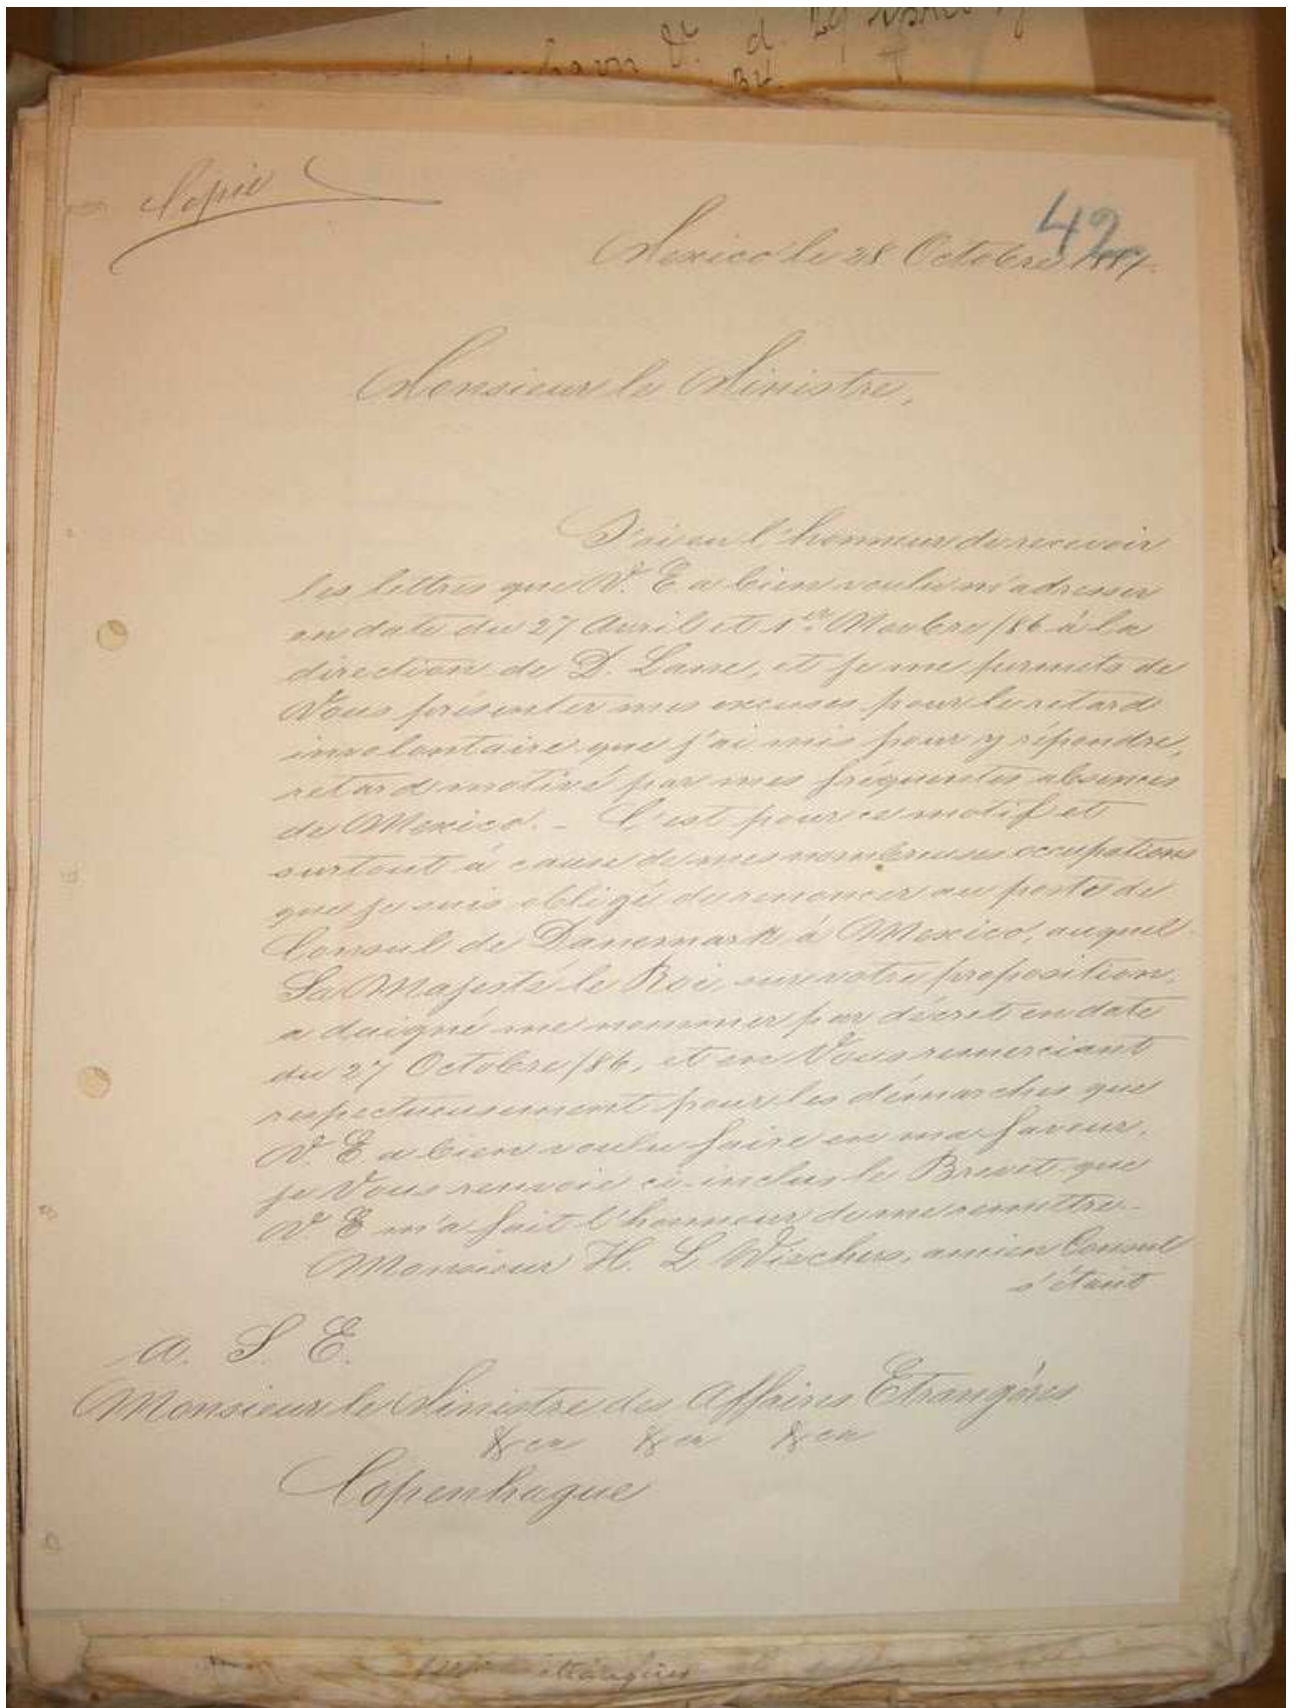 Copie
42
Mexico le 28 Octobre 1887.
Monsieur le Ministre,
J'ai eu l'honneur de recevoir
les lettres que V. E a bien voulu m'adresser
en date du 27 Avril et 1er Novbre/86 à la
direction de D. Lame, et je me permets de
Vous présenter mes excuses pour le retard
involontaire que j'ai mis pour y répondre,
retard motivé par mes fréquentes absences
de Mexico. - C'est pour ce motif et
surtout à cause de mes nombreuses occupations
que je suis obligé de renoncer au poste de
Consul de Danemark à Mexico, auquel
Sa Majesté le Roi, sur votre proposition,
a daigné me nommer par décret en date
du 27 Octobre/86, et en Vous remerciant
respectueusement pour les démarches que
V. E a bien voulu faire en ma faveur,
je Vous renvoie ci-inclus le Brevet que
V. E m'a fait l'honneur de me remettre. -
Monsieur H. L Wiechers, ancien Consul
s'étant
A. S. E.
Monsieur le Ministre des Affaires Etrangères
&ca &ca &ca
Copenhague